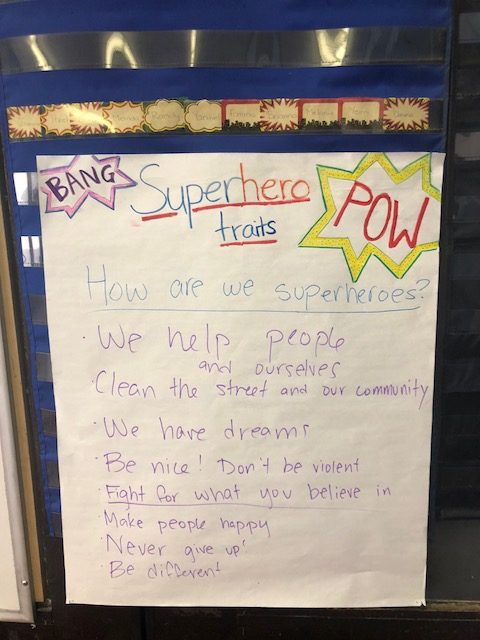 BANG
Superhero
traits
POW
How are we superheroes?
· We help people
and ourselves
· Clean the street and our community
· We have dreams
· Be nice! Don't be violent
· Fight for what you believe in
· Make people happy
· Never give up!
· Be different